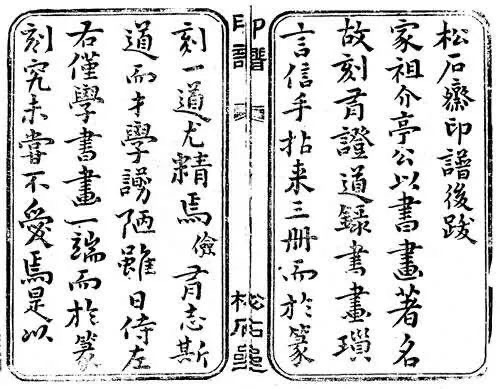 松石齋印譜後跋
家祖介亭公以書畫著名
故刻有證道錄書畫瑣
言信手拈来三册而於篆
印譜
松石齋
刻一道尤精焉儉有志斯
道而才學譾陋雖日侍左
右僅學書畫一端而於篆
刻究未嘗不愛焉是以